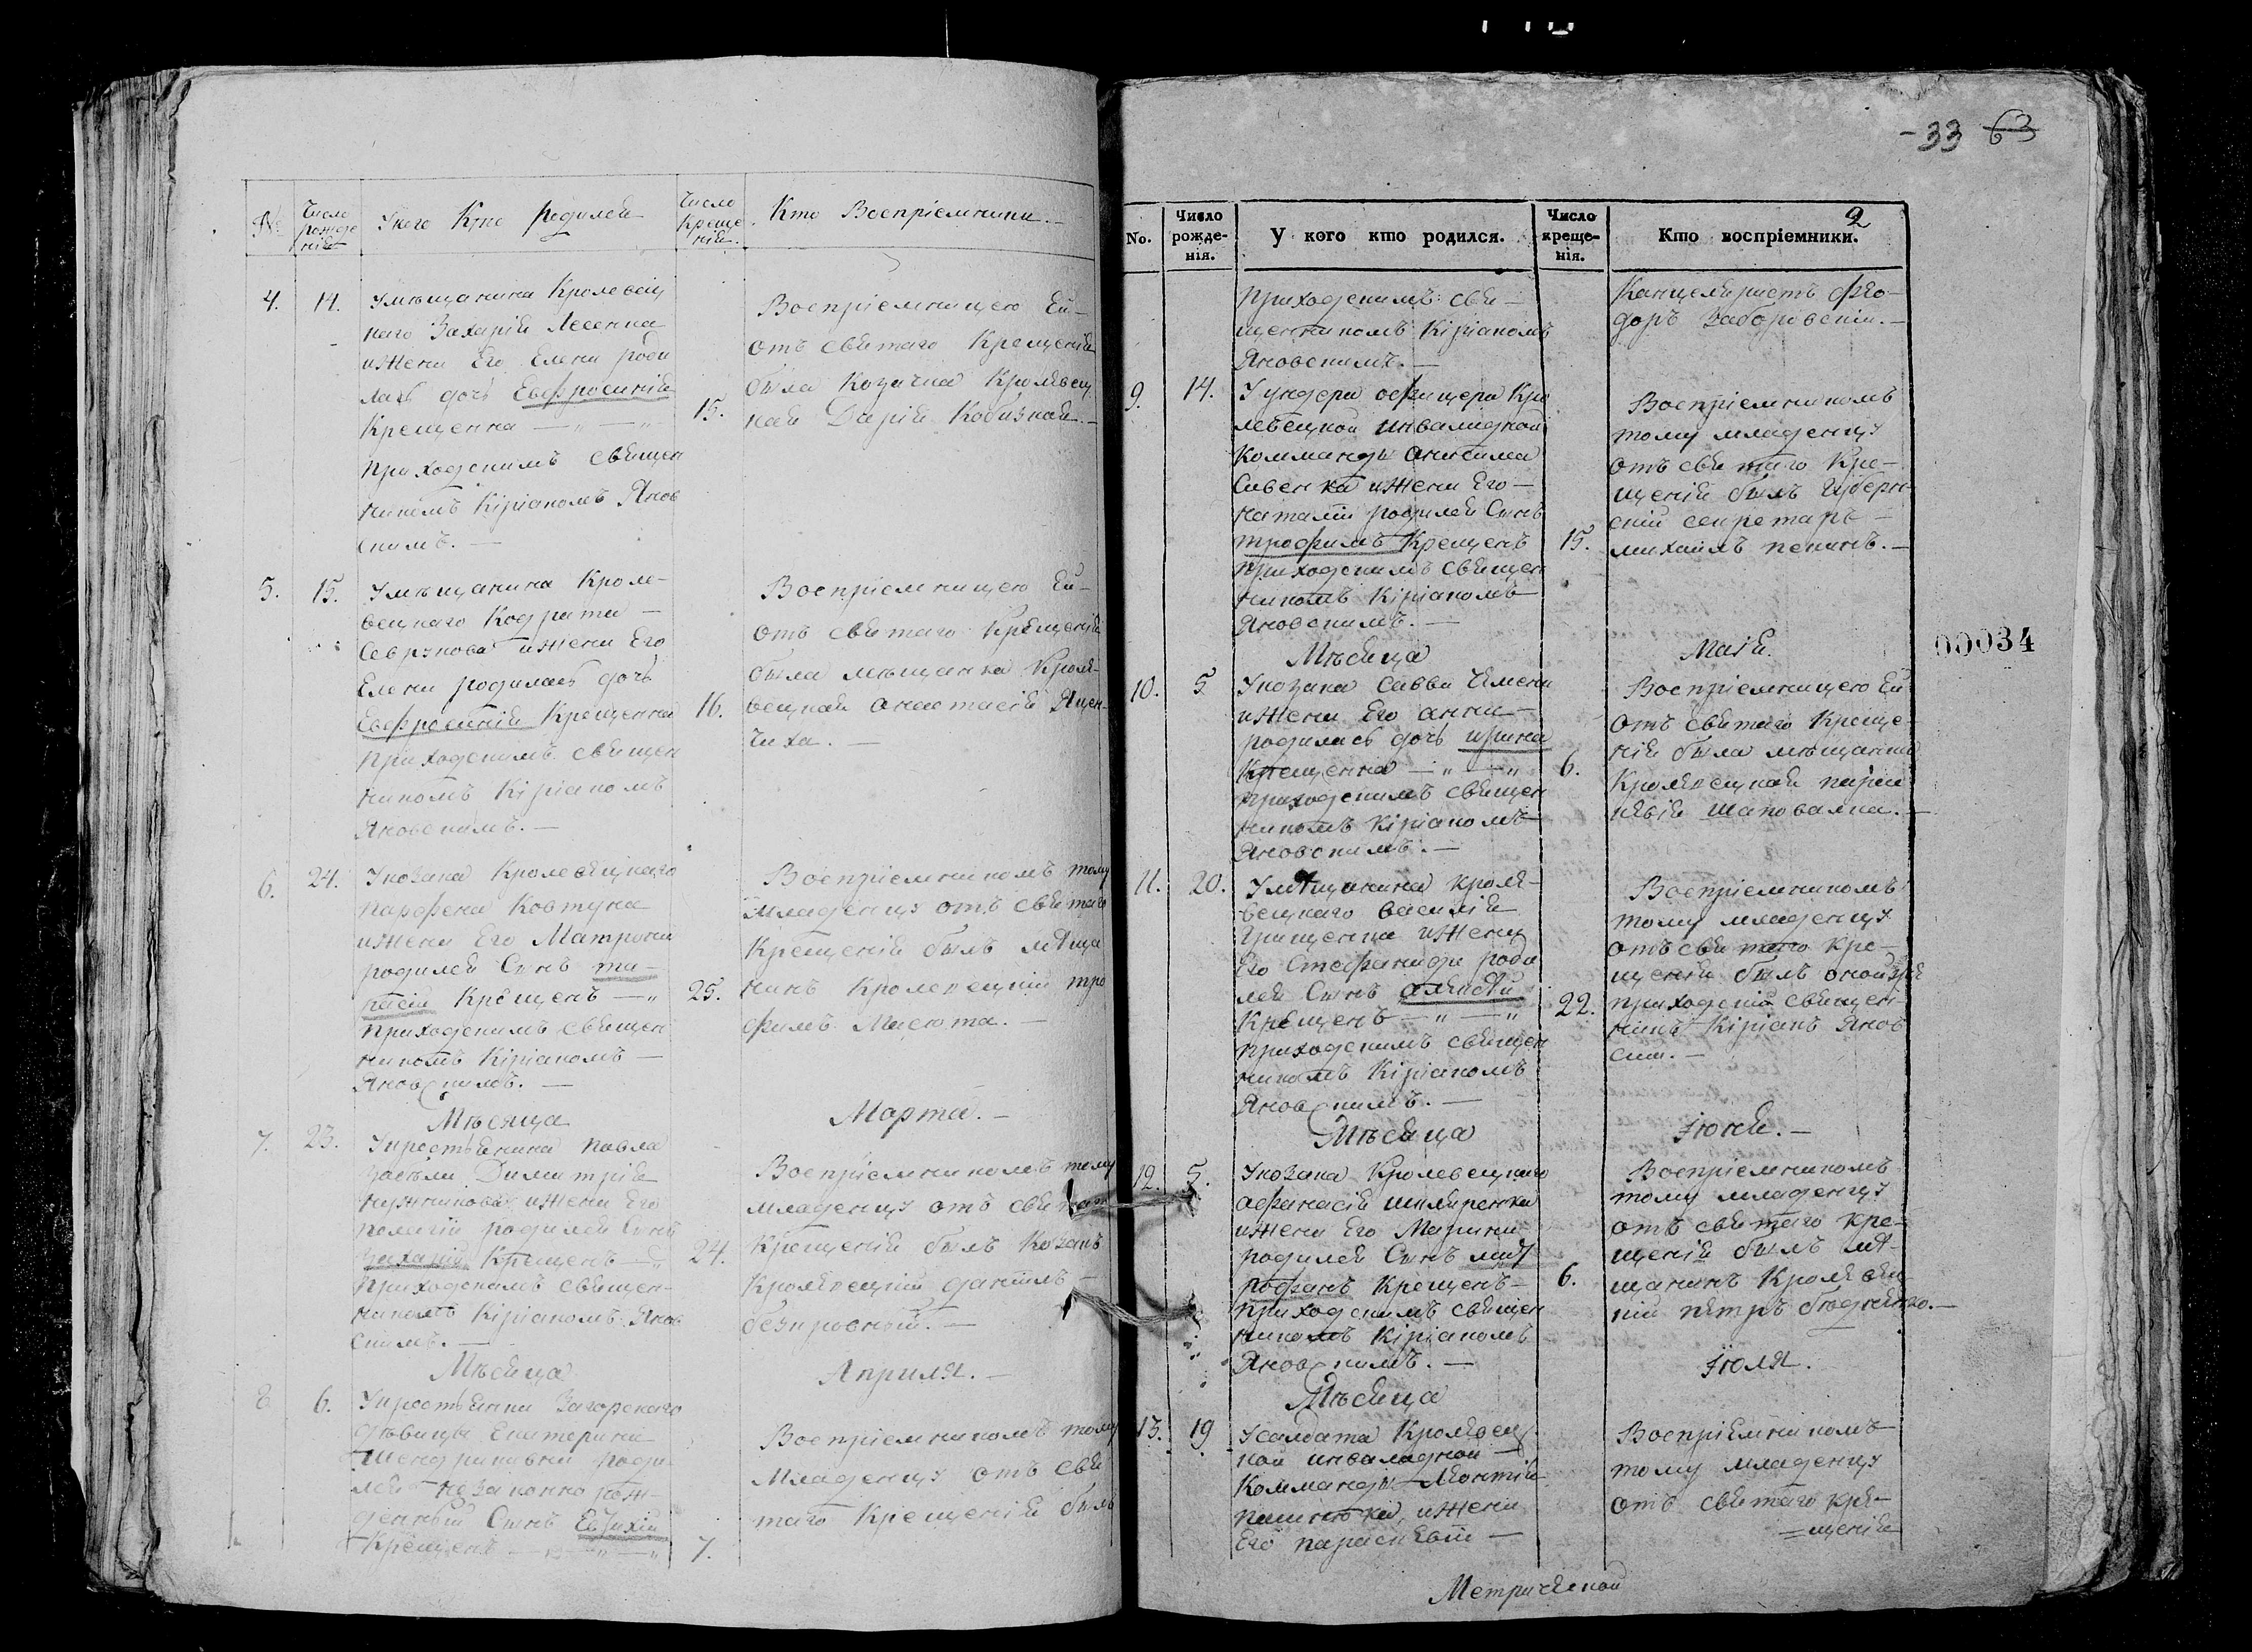 №
Число рожде нія
У кого Кто родился
Число Креще нія.
Кто Воспріемники.—
4. 14.
Умещанина Кролевец
каго Захарія Лесенка
ижены Его Елены роди
лась дочь Евфросинія
Крещенна — „ — „
приходскимъ священ
никомъ Кіріакомъ Янов
скимъ. —
15.
Воспріемницею Ей—
отъ святаго Крещенія
была Козачка Кролевец
кая Дарія Кобизкая.—
5. 15.
Умещанина Кроле—
вецкаго Кодрата —
ижены Его
Елены родилась дочь
Евфросинія Крещенна
приходскимъ священ
никомъ Кіріакомъ
Яновскимъ. —
16.
Воспріемницею Ей—
отъ святаго Крещенія
была мещанка Кроле—
вецкая Анастасія Яцен—
чиха. —
6. 24.
Укозака Кролевецкаго
Парфена Ковтуна
ижены Его Матроны
родился Сынъ
Крещенъ — „
приходскимъ священ
никомъ Кіріакомъ —
Яновскимъ. —
25.
Воспріемникомъ тому
младенцу отъ святаго
Крещенія былъ меща
нинъ Кролевецкій тро
фимъ Масюта. —
Месяца
Марта. —
7. 23.
Укрестьянина павла
Димитрія
ижены Его
родился Сынъ
Захарій Крещенъ — „
приходскимъ священ—
никомъ Кіріакомъ Янов
скимъ. —
24.
Воспріемникомъ тому
младенцу отъ святаго
Крещенія былъ Козакъ
Кролевецкій даніилъ —
безкровный. —
Месяца
Априля. —
8 6.
Укрестьянки Загорскаго
девицы Екатерины
роди—
лся незаконно рож—
денный Сынъ Евтихій
Крещенъ — „ — „ — „
7.
Воспріемникомъ тому
Младенцу отъ свя
таго Крещенія былъ
— 33 63
2
No.
Число рожде- нія.
У кого кто родился.
Число креще- нія.
Кто воспріемники.
приходскимъ свя—
щенникомъ Кіріакомъ
Яновскимъ. —
Канцеляристъ Фео—
доръ Заборовскій. —
9. 14.
Уундера офицера Кро
левецкой инвалидной
Комманды Анисима
Савенка ижены Его —
наталіи родился Сынъ
трофимъ Крещенъ
приходскимъ священ
никомъ Кіріакомъ
Яновскимъ. —
15.
Воспріемникомъ
тому младенцу
отъ святаго Кре—
щенія былъ Губерн—
скій секретарь —
михаилъ пекинъ. —
Месяца
Маія.
10. 5
Укозака Саввы
ижены Его анны —
родилась дочь ирина
Крещенна — „ — „
приходскимъ священ
никомъ Кіріакомъ
Яновскимъ. —
6.
Воспріемницею Ей
отъ святаго Креще—
нія была мещанка
Кролевецкая параск
евія шаповалка. —
11. 20.
Умещанина кроле—
вецкаго василія
Грищенка ижены
Его Стефаниды роди
лся Сынъ алексей
Крещенъ — „ — „
приходскимъ священ
никомъ Кіріакомъ
Яновскимъ. —
22.
Воспріемникомъ
тому младенцу
отъ святаго кре—
щенія былъ
приходскій священ—
никъ Кіріакъ Янов
скій. —
Месяца
Іюня. —
12. 5.
Укозака Кролевецкаго
афанасія шкляренка
ижены Его Марины
родился Сынъ мит
рофанъ Крещенъ —
приходскимъ священ
никомъ Кіріакомъ
Яновскимъ. —
6.
Воспріемникомъ
тому младенцу
отъ святаго кре—
щенія былъ ме—
щанинъ Кролевец
кій петръ —
Месяца
Іюля.
13. 19
Усалдата Кролевец
кой инвалидной —
Комманды Леонтія
ижены
Его параскевіи —
Воспріемникомъ
тому младенцу
отъ святаго кре—
=щенія
Метрической
00034